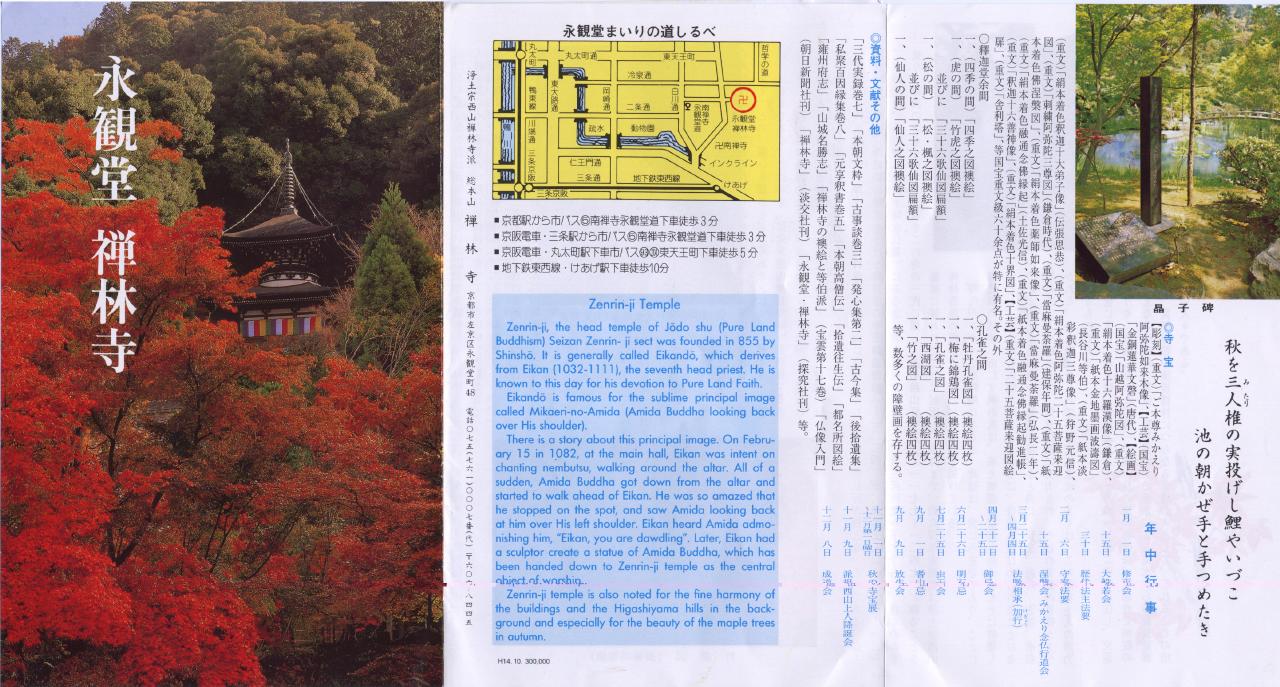 永観堂 禅林寺
浄土宗西山禅林寺派 総本山 禅林寺 京都市左京区永観堂町48 電話〇七五(七六一)〇〇〇七番(代) 〒六〇六-八四四五
永観堂まいりの道しるべ
丸太町
丸太町通
東天王町
哲学の道
冷泉通
鴨東線
東大路通
岡崎通
二条通
白川通
永観堂
禅林寺
南禅寺永観堂道
川端通
疏水
動物園
卍南禅寺
仁王門通
インクライン
三条京阪
三条通
地下鉄東西線
けあげ
三条京阪
■京都駅から市バス⑤南禅寺永観堂道下車徒歩3分
■京阪電車・三条駅から市バス⑤南禅寺永観堂道下車徒歩3分
■京阪電車・丸太町駅下車市バス東天王町下車徒歩5分
■地下鉄東西線・けあげ駅下車徒歩10分
Zenrin-ji Temple
Zenrin-ji, the head temple of Jōdo shu (Pure Land
Buddhism) Seizan Zenrin- ji sect was founded in 855 by
Shinshō. It is generally called Eikandō, which derives
from Eikan (1032-1111), the seventh head priest. He is
known to this day for his devotion to Pure Land Faith.
Eikandō is famous for the sublime principal image
called Mikaeri-no-Amida (Amida Buddha looking back
over His shoulder).
There is a story about this principal image. On Febru-
ary 15 in 1082, at the main hall, Eikan was intent on
chanting nembutsu, walking around the altar. All of a
sudden, Amida Buddha got down from the altar and
started to walk ahead of Eikan. He was so amazed that
he stopped on the spot, and saw Amida looking back
at him over His left shoulder. Eikan heard Amida admo-
nishing him, "Eikan, you are dawdling". Later, Eikan had
a sculptor create a statue of Amida Buddha, which has
been handed down to Zenrin-ji temple as the central
object of worship.
Zenrin-ji temple is also noted for the fine harmony of
the buildings and the Higashiyama hills in the back-
ground and especially for the beauty of the maple trees
in autumn.
H14. 10. 300,000
晶子碑
秋を三人椎の実投げし鯉やいづこ
みたり
池の朝かぜ手と手つめたき
◎寺宝
【彫刻】(重文)「ご本尊みかえり
阿弥陀如来木像」、【工芸】(国宝)
「金銅蓮華文磬」(唐代)、【絵画】
(国宝)「山越阿弥陀図」、(重文)
「絹本着色十六羅漢像」(鎌倉)、
(重文)「紙本金地墨画波濤図」
(長谷川等伯)、(重文)「紙本淡
彩釈迦三尊像」(狩野元信)、
(重文)「絹本着色釈迦十大弟子像」(伝張思恭)、(重文)「絹本着色阿弥陀二十五菩薩来迎
図」、(重文)「刺繍阿弥陀三尊図」(鎌倉時代)、(重文)「當麻曼荼羅」(建保年間)、(重文)「紙
本着色佛涅槃図」、(重文)「絹本着色薬師如来像」、(重文)「當麻曼荼羅」(弘長二年)、
(重文)「絹本着色融通念佛縁起」(土佐光信)、(重文)「紙本着色融通念佛縁起勧進帳」、
(重文)「釈迦十六善神像」、(重文)「絹本着色十界図」、【工芸】(重文)「二十五菩薩来迎図絵
扉」、(重文)「舎利塔」、等国宝重文級六十余点が特に有名。その外
〇釋迦堂余間
一、(四季の間)「四季之図襖絵」
一、(虎の間)「竹虎之図襖絵」
並びに「三十六歌仙図扁額」
一、(松の間)「松・楓之図襖絵」
並びに「三十六歌仙図扁額」
一、(仙人の間)「仙人之図襖絵」
〇孔雀之間
一、「牡丹孔雀図」(襖絵四枚)
一、「梅に錦鶏図」(襖絵四枚)
一、「孔雀之図」(襖絵四枚)
一、「西湖図」(襖絵四枚)
一、「竹之図」(襖絵四枚)
等、数多くの障壁画を存する。
◎資料・文献その他
「三代実録巻七」「本朝文粋」「古事談巻三」「発心集第二」「古今集」「後拾遺集」
「私聚百因縁集巻八」「元亨釈書巻五」「本朝高僧伝」「拾遺往生伝」「都名所図絵」
「雍州府志」「山城名勝志」「禅林寺の襖絵と等伯派」(宝雲第十七巻)「仏像入門」
(朝日新聞社刊)「禅林寺」(淡交社刊)「永観堂・禅林寺」(探究社刊)等。
年中行事
一月 一日 修正会
十五日 大般若会
三十日 歴代法主法要
二月 六日 守家法要
十五日 涅槃会、みかえり念仏行道会
三月二十五日～四月四日 法脈相承(加行)
四月二十二日～二十五日 御忌会
六月二十六日 明忌
七月二十五日 虫干会
九月 一日 善忌
九月 九日 放生会
十一月 一日 秋の寺宝展
十一月 九日 派祖西山上人降誕会
十二月 八日 成道会